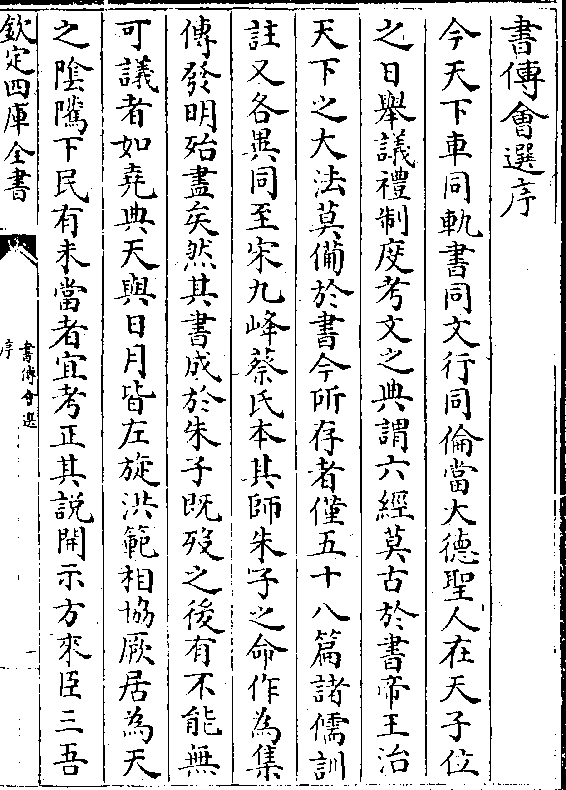 書傳會選序
今天下車同軌書同文行同倫當大德聖人在天子位
之日舉議禮制度考文之典謂六經莫古於書帝王治
天下之大法莫備於書今所存者僅五十八篇諸儒訓
註又各異同至宋九峰蔡氏本其師朱子之命作為集
傳發明殆盡矣然其書成於朱子既歿之後有不能無
可議者如堯典天與日月皆左旋洪範相協厥居為天
之陰隲下民有未當者宜考正其説開示方來臣三吾
欽定四庫全書
書傳會選
序